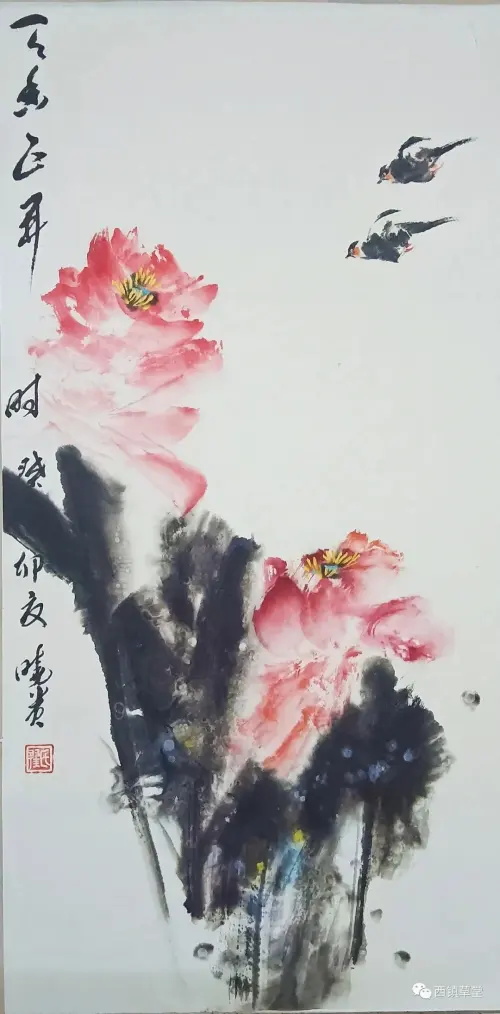 天香正
时癸卯夏 晓贵
西镇草堂